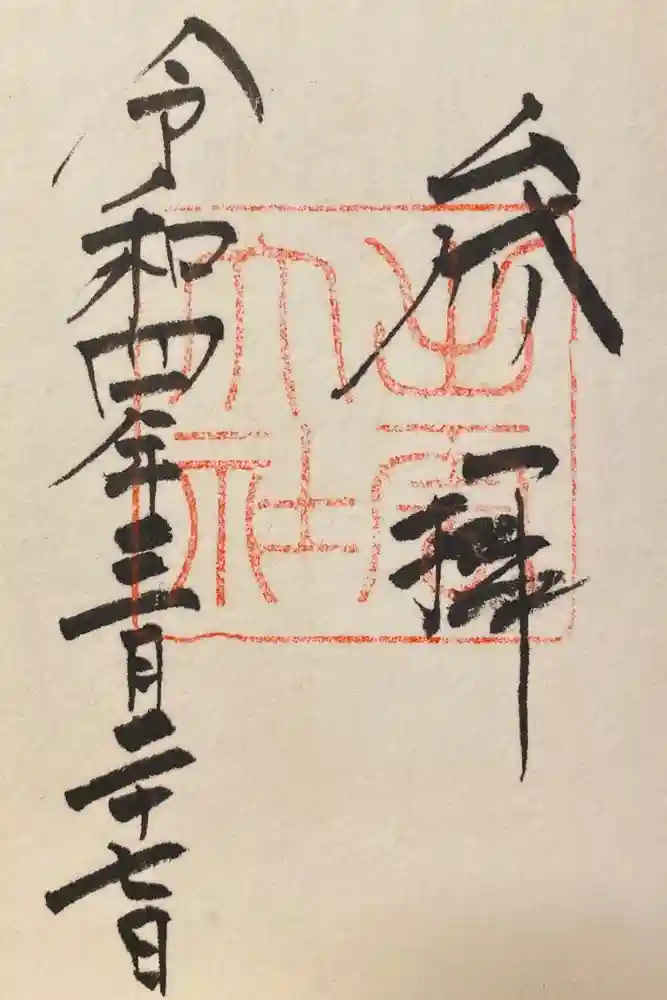 参拝
令和四年三月二十七日
出雲
大社